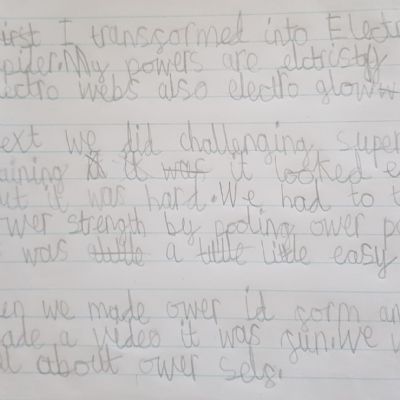 irst I transgormed into Electr
pider. My powers are elctristy
lectro webs also electro glow
ext we did challenging super
aining it was it looked e
ut it was hard. We had to t
wer strength by pooling ower po
was a little little easy
en we made ower id gorm an
ade a video it was gun. We w
ll about ower selgs.